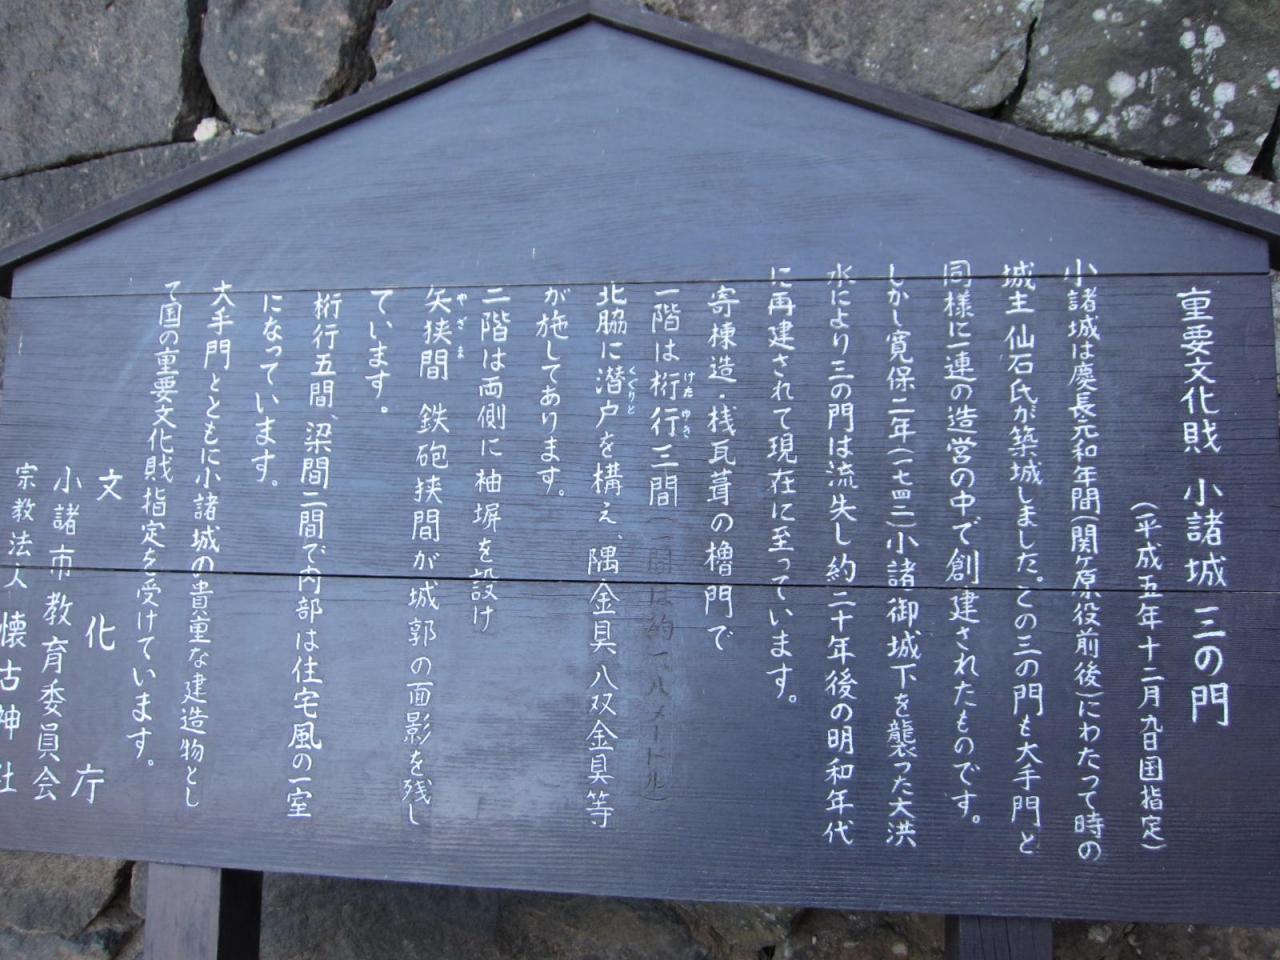 重要文化財 小諸城 三の門
(平成五年十二月九日国指定)
小諸城は慶長元和年間(関ヶ原役前後)にわたって時の
城主仙石氏が築城しました。この三の門も大手門と
同様に一連の造営の中で創建されたものです。
しかし寛保二年(一七四二)小諸御城下を襲った大洪
水により三の門は流失し約二十年後の明和年代
に再建されて現在に至っています。
寄棟造・桟瓦葺の櫓門で
一階は桁行三間(一間は約一.八メートル)
けたゆき
北脇に潜戸を構え、隅金具八双金具等
くぐりど
が施してあります。
二階は両側に袖塀を設け
矢狭間 鉄砲狭間が城郭の面影を残し
やざま
ています。
桁行五間、梁間二間で内部は住宅風の一室
になっています。
大手門とともに小諸城の貴重な建造物とし
て国の重要文化財指定を受けています。
文化庁
小諸市教育委員会
宗教法人 懐古神社